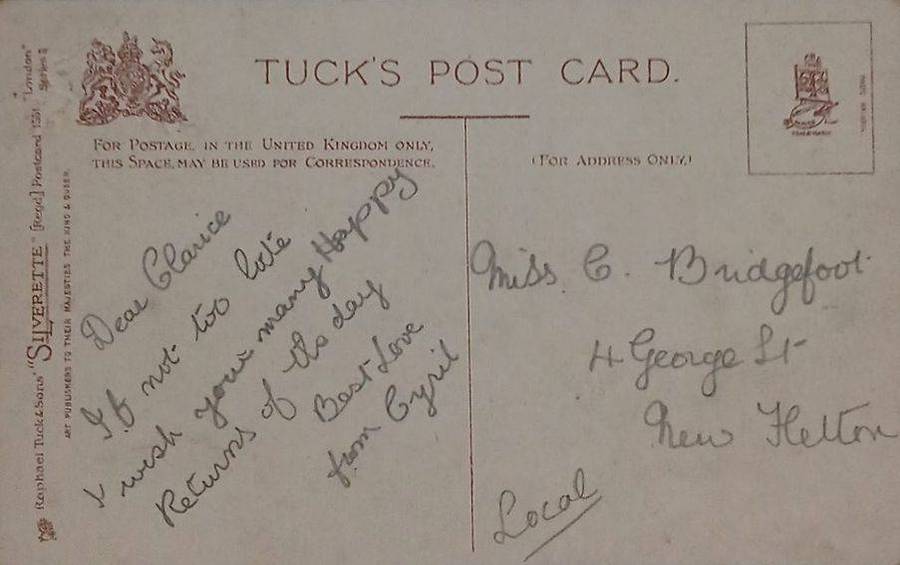 TUCK'S POST CARD.
FOR POSTAGE IN THE UNITED KINGDOM ONLY,
THIS SPACE MAY BE USED FOR CORRESPONDENCE.
(FOR ADDRESS ONLY.)
Raphael Tuck & Sons' "SILVERETTE" [Regd] Postcard 1551 "London" Series
ART PUBLISHERS TO THEIR MAJESTIES THE KING & QUEEN.
Dear Clarice
If not too late
I wish your many Happy
Returns of ths day
Best Love
from Cyril
Miss C. Bridgefoot
4 George St
New Fletton
Local